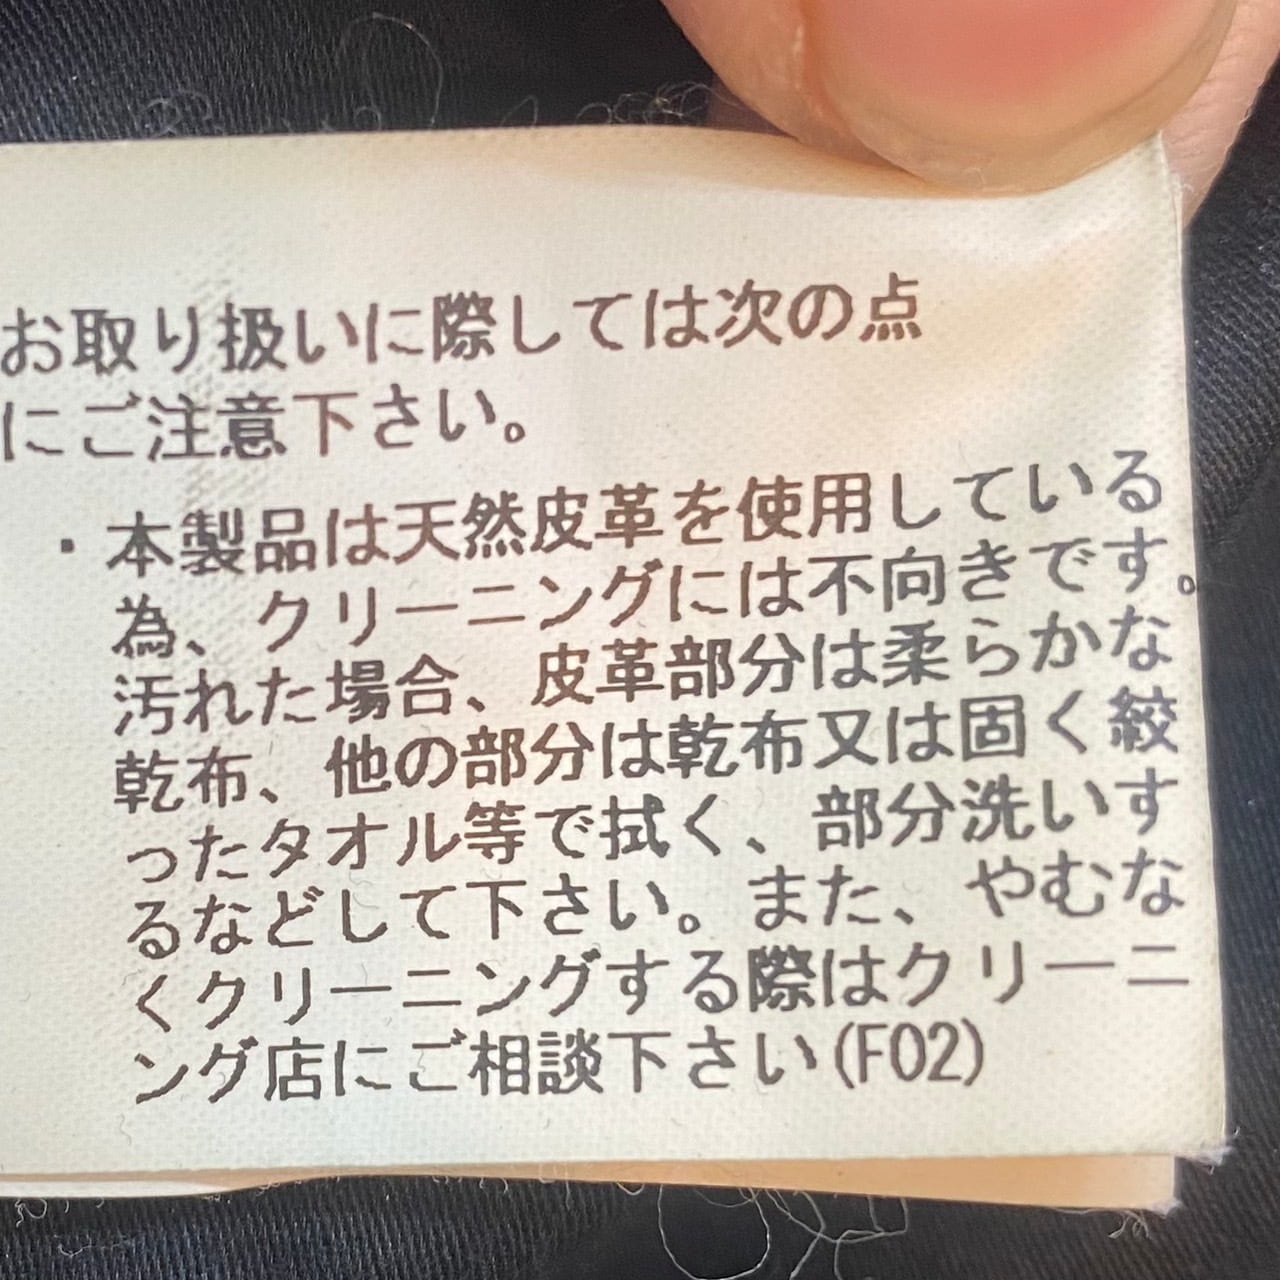 お取り扱いに際しては次の点
にご注意下さい。
・本製品は天然皮革を使用している
為、クリーニングには不向きです。
汚れた場合、皮革部分は柔らかな
乾布、他の部分は乾布又は固く絞
ったタオル等で拭く、部分洗いす
るなどして下さい。また、やむな
くクリーニングする際はクリーニ
ング店にご相談下さい(F02)